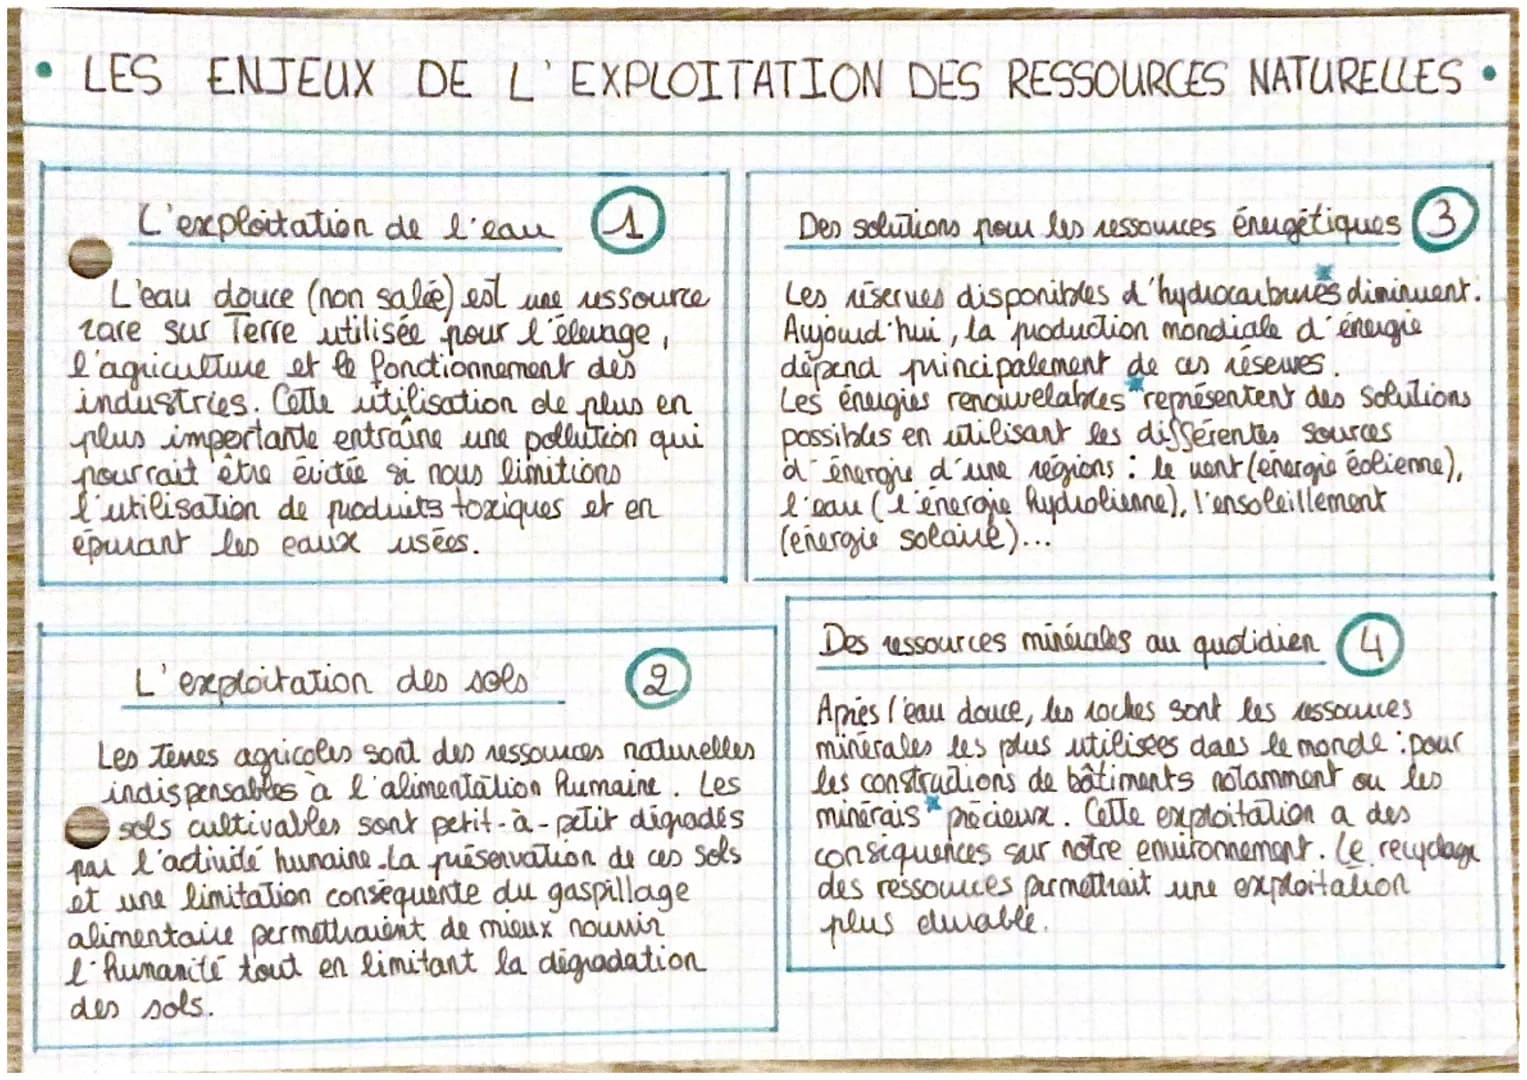 • LES ENJEUX DE L'EXPLOITATION DES RESSOURCES NATURELLES •
L'exploitation de l'eau 1
L'eau douce (non salée) est une ressource
rare sur Terre utilisée pour l'élevage,
l'agriculture et le fonctionnement des
industries. Cette utilisation de plus en
plus importante entraîne une pollution qui
pourrait être évitée si nous limitions
l'utilisation de produits toxiques et en
épurant les eaux usées.
L'exploitation des sols 2
Les terres agricoles sont des ressources naturelles
indispensables à l'alimentation humaine. Les
sols cultivables sont petit-à-petit dégradés
par l'activité humaine. La préservation de ces sols
et une limitation conséquente du gaspillage
alimentaire permettraient de mieux nourrir
l'humanité tout en limitant la dégradation
des sols.
Des solutions pour les ressources énergétiques 3
Les réserves disponibles d'hydrocarburés* diminuent.
Aujourd'hui, la production mondiale d'énergie
dépend principalement de ces réserves.
Les énergies renouvelables* représentent des solutions
possibles en utilisant les différentes sources
d'énergie d'une régions : le vent (énergie éolienne),
l'eau (l'énergie hydrolienne), l'ensoleillement
(énergie solaire)...
Des ressources minérales au quotidien 4
Après l'eau douce, les roches sont les ressources
minérales les plus utilisées dans le monde : pour
les constructions de bâtiments notamment ou les
minérais* précieux. Cette exploitation a des
conséquences sur notre environnement. Le recyclage
des ressources permettrait une exploitation
plus durable.